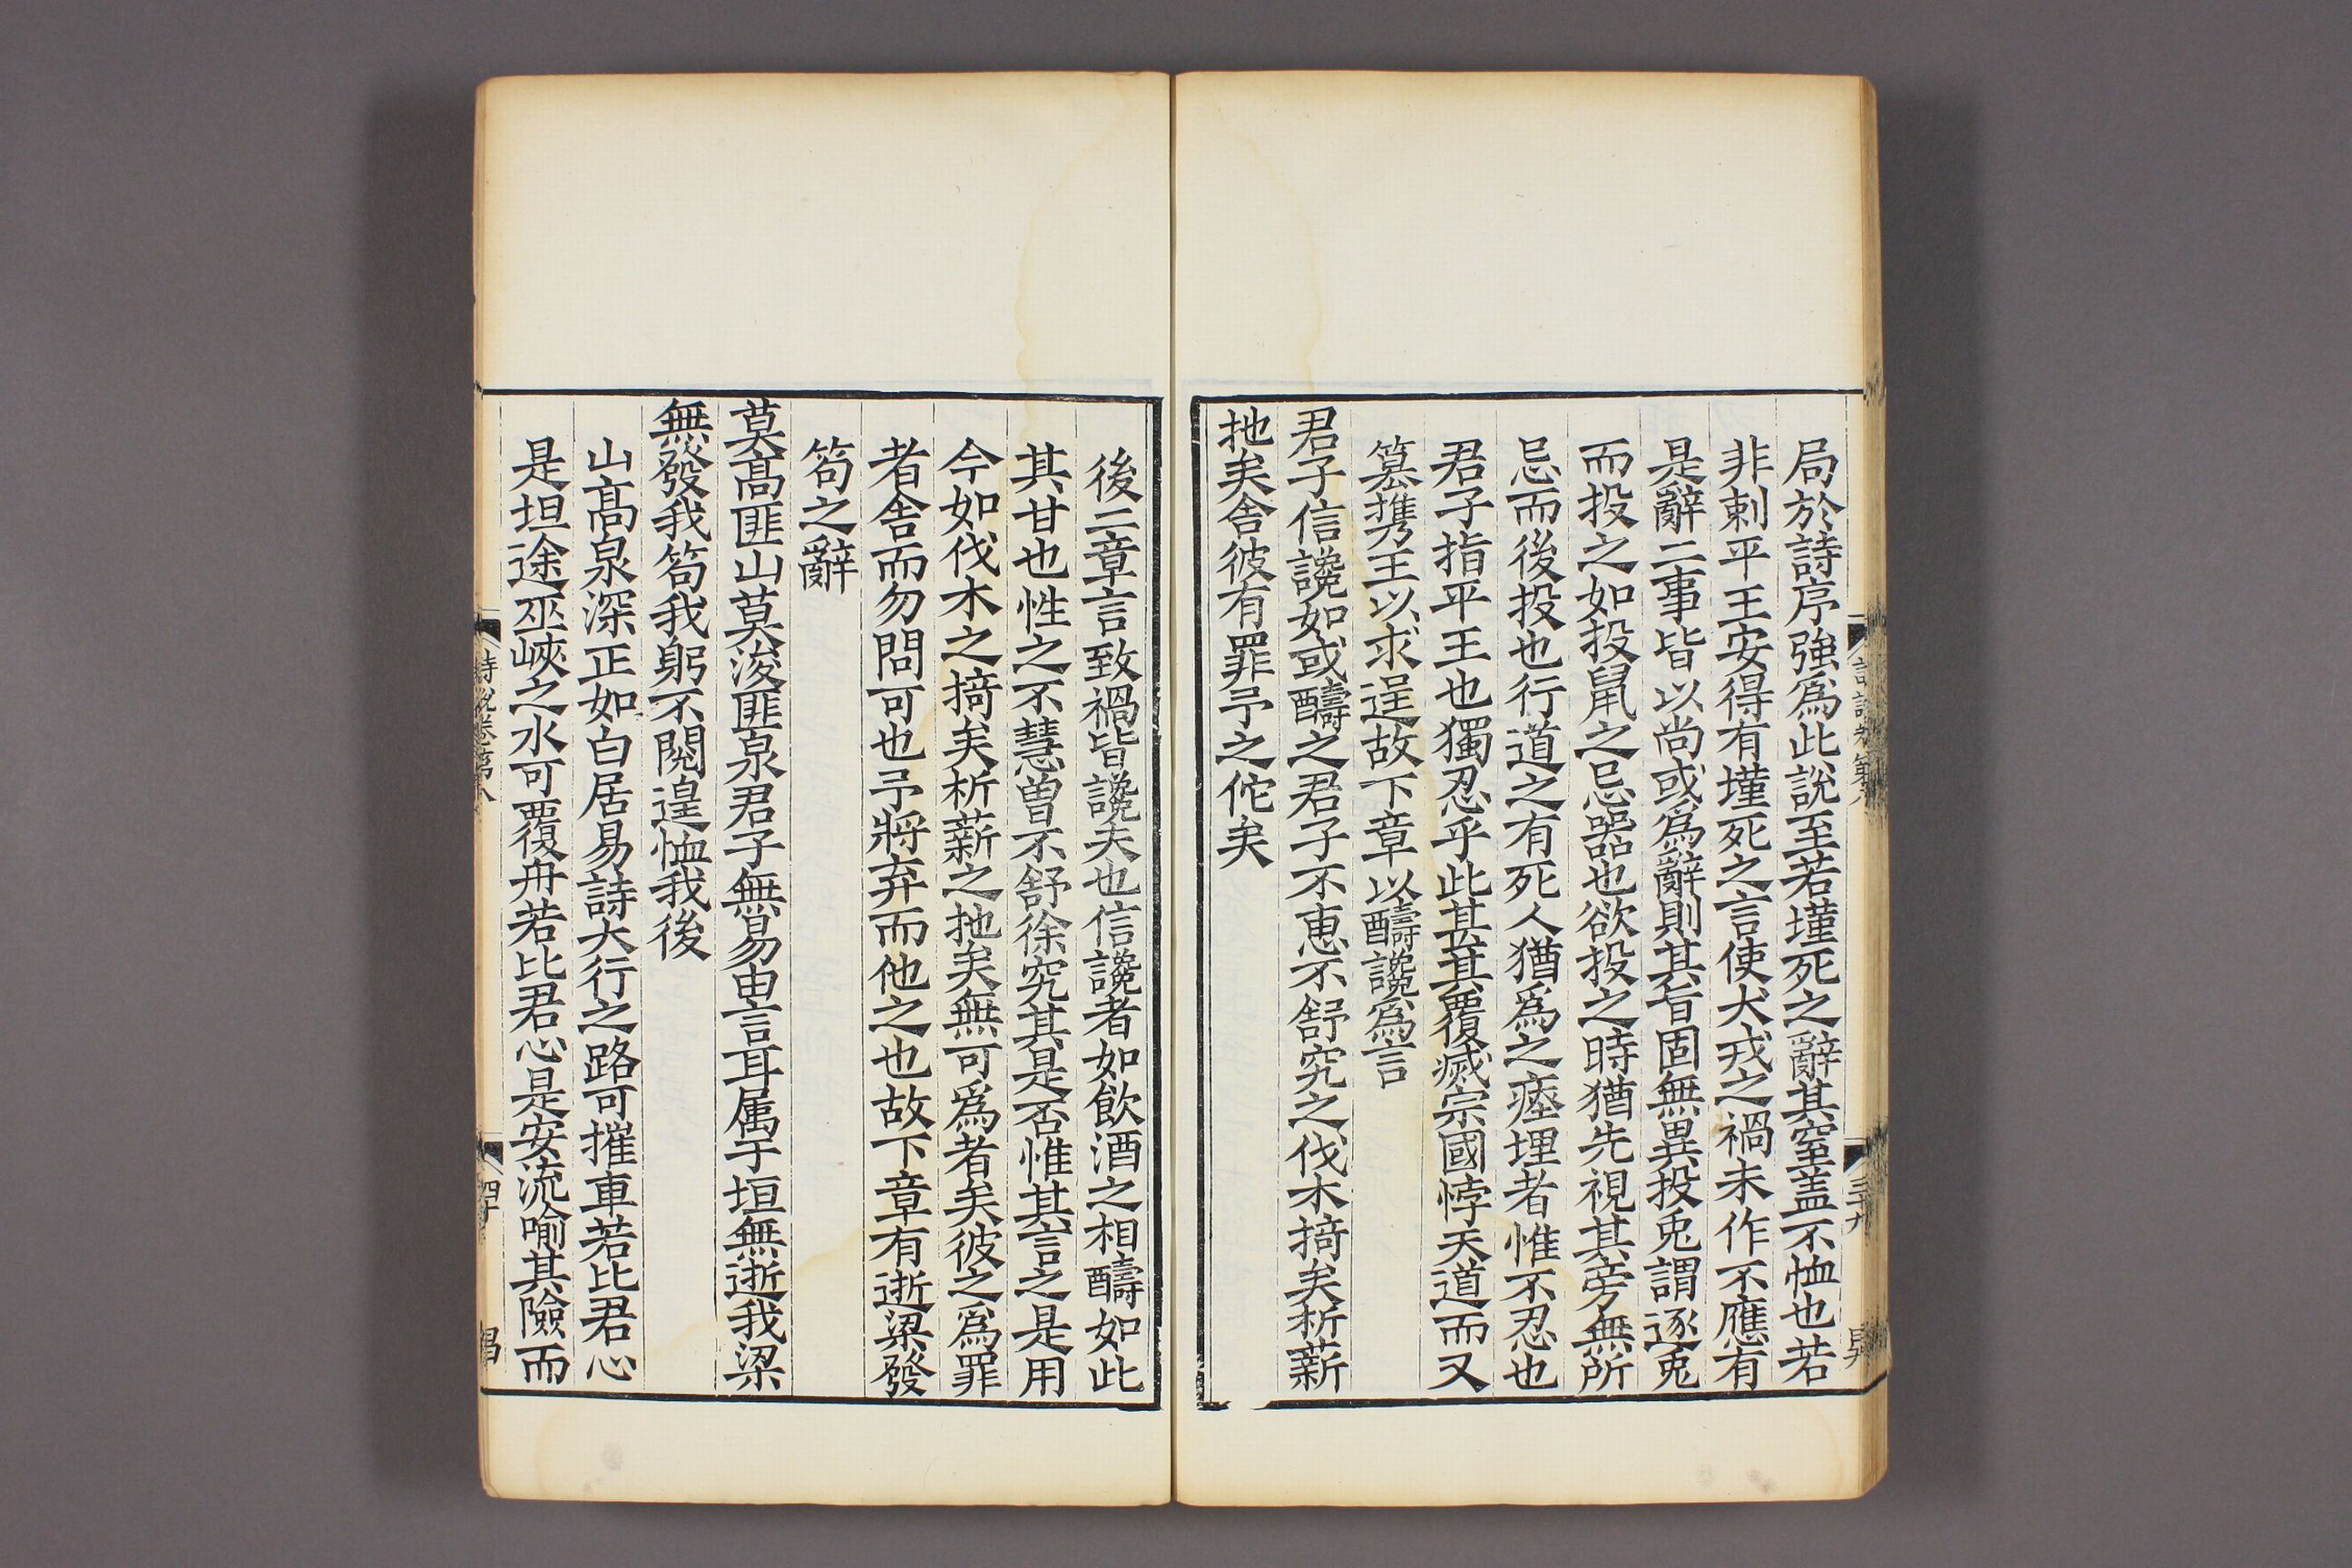 局於詩序強爲此說至若墐死之辭其窒蓋不恤也若
非刺平王安得有墐死之言使犬戎之禍未作不應有
是辭二事皆以尚或爲辭則其旨固無異投兎謂逐兎
而投之如投鼠之忌器也欲投之時猶先視其旁無所
忌而後投也行道之有死人猶爲之瘞埋者惟不忍也
君子指平王也獨忍乎此其其覆滅宗國悖天道而又
簒攜王以求逞故下章以醻讒爲言
君子信讒如或醻之君子不惠不舒究之伐木掎矣析薪
扡矣舍彼有罪予之佗矣
詩說卷第八
三十九
後二章言致禍皆讒夫也信讒者如飲酒之相醻如此
其甘也性之不慧曽不舒徐究其是否惟其言之是用
今如伐木之掎矣析薪之扡矣無可爲者矣彼之爲罪
者舍而勿問可也予將弃而他之也故下章有逝梁發
笱之辭
莫髙匪山莫浚匪泉君子無易由言耳属于垣無逝我梁
無發我笱我躬不閱遑恤我後
山髙泉深正如白居易詩大行之路可摧車若比君心
是坦途巫峽之水可覆舟若比君心是安流喻其險而
詩說卷第八
四十